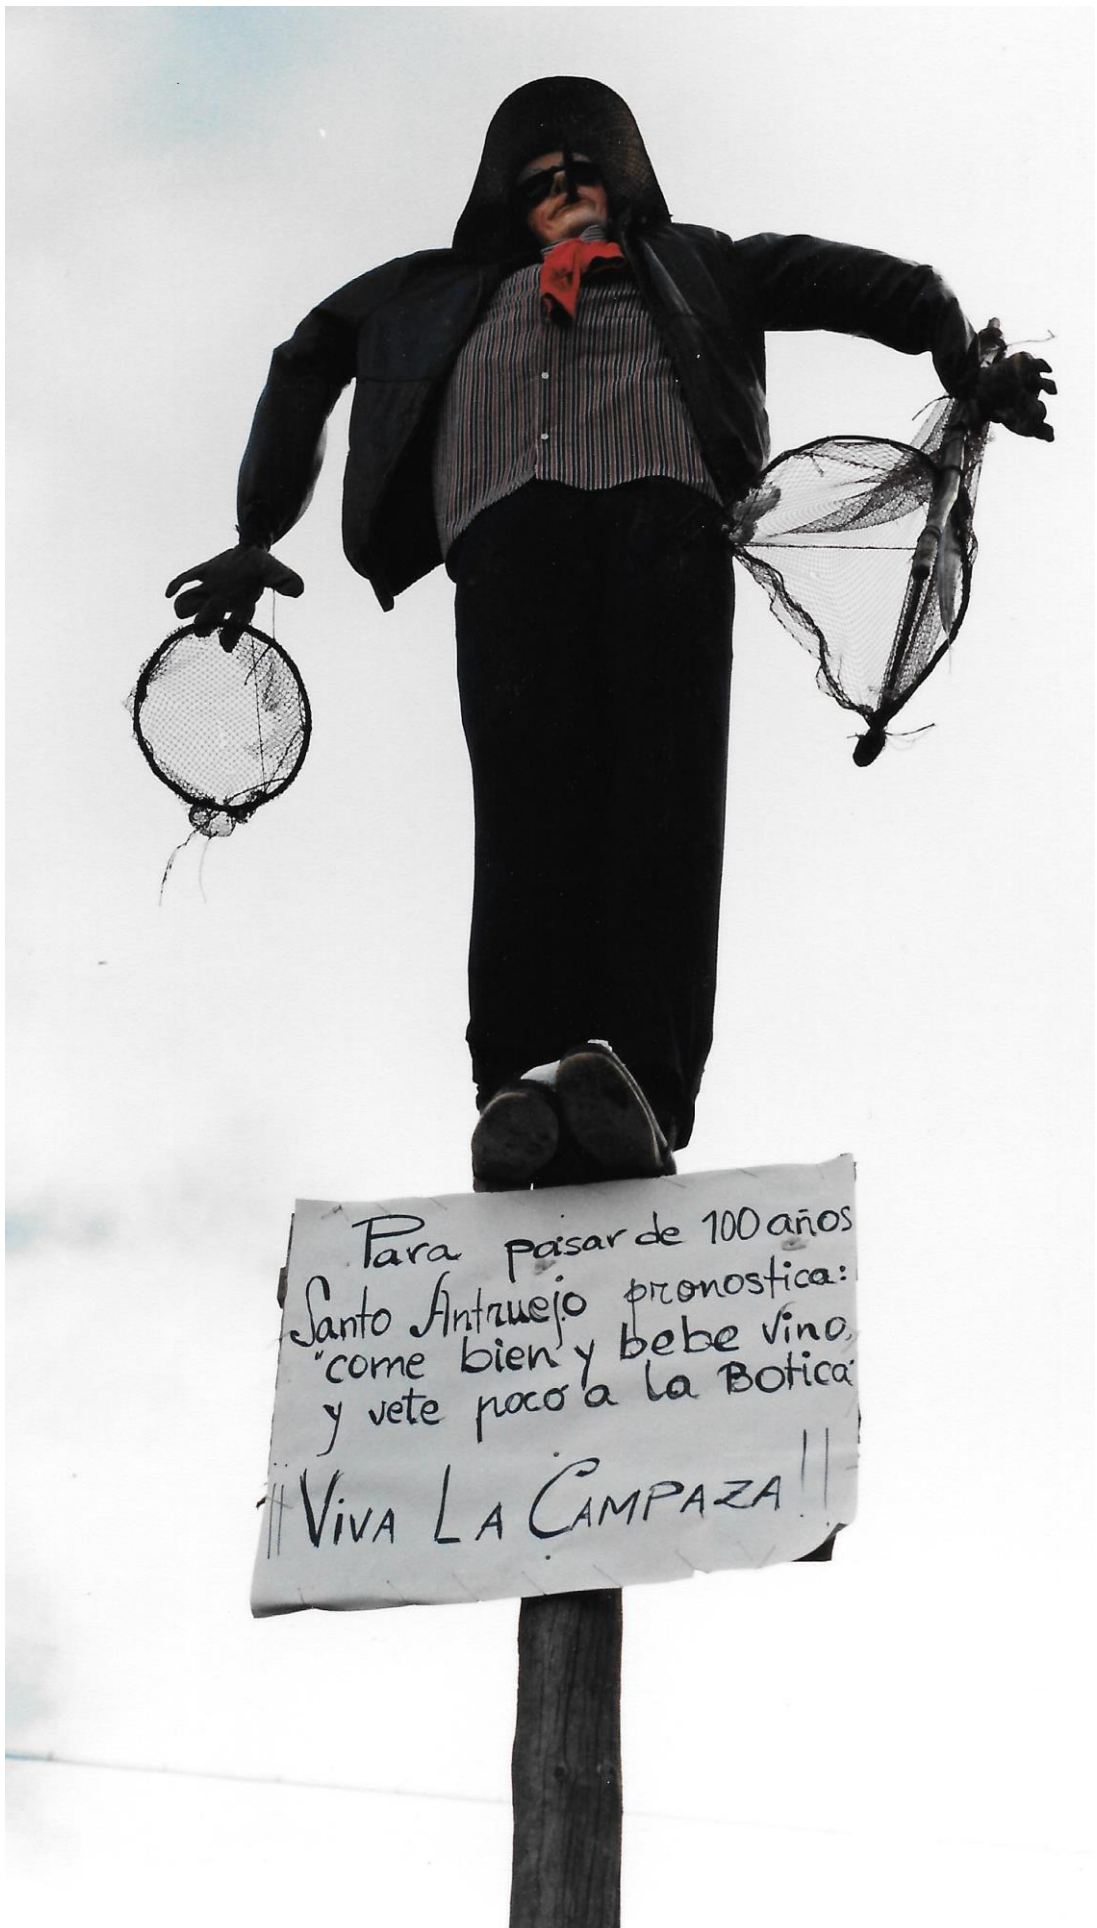 Para pasar de 100 años
Santo Antruejo pronostica:
"come bien y bebe vino,
y vete poco a la Botica"
¡¡VIVA LA CAMPAZA!!